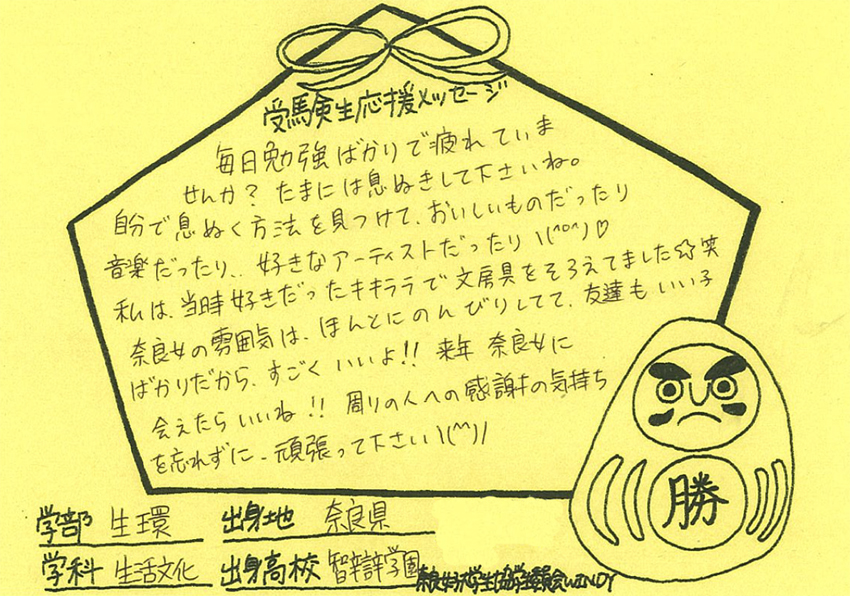 受験生応援メッセージ
毎日勉強ばかりで疲れていま
せんか？たまには息ぬきして下さいね。
自分で息ぬく方法を見つけて、おいしいものだったり
音楽だったり、、好きなアーティストだったり \(^o^)♡
私は、当時好きだったキキララで文房具をそろえてました☆笑
奈良女の雰囲気は、ほんとにのんびりしてて、友達もいい子
ばかりだから、すごくいいよ!! 来年 奈良女に
会えたらいいね!! 周りの人への感謝の気持ち
を忘れずに、頑張って下さい\(^^)/
勝
学部 生環 出身地 奈良県
学科 生活文化 出身高校 智辯学園
奈良女子大学生協学生委員会WINDY